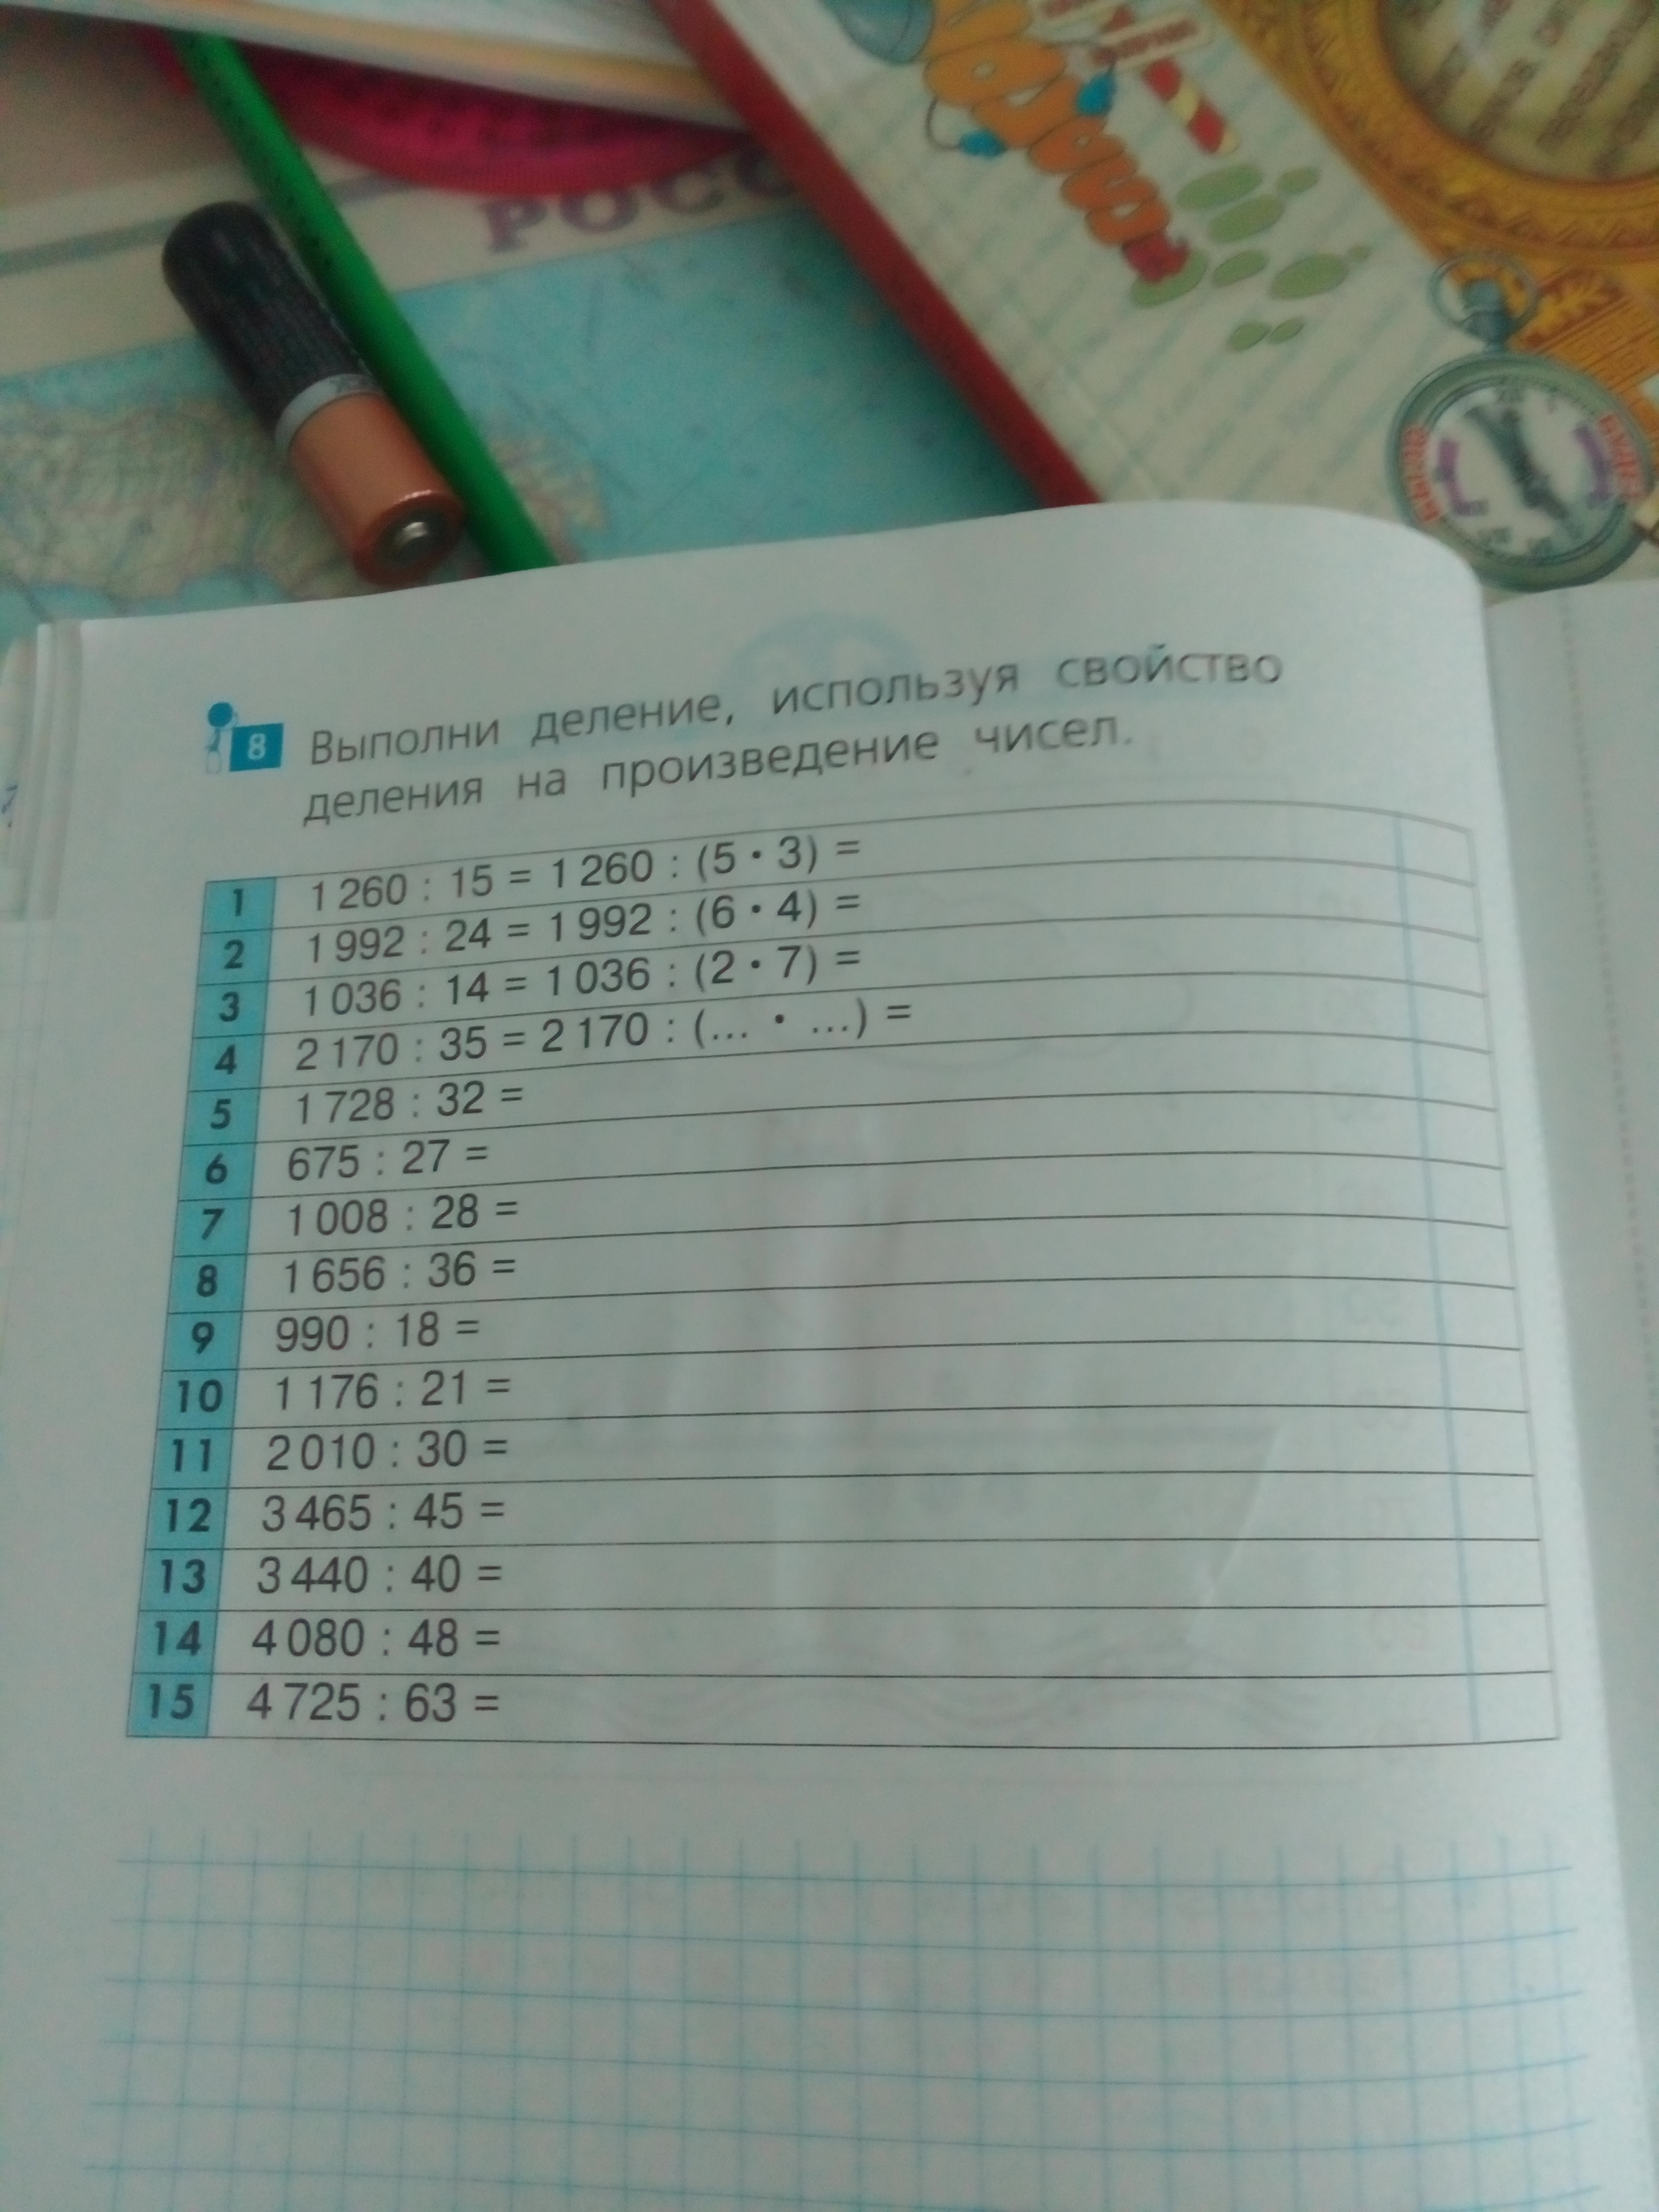 РОСС
8 Выполни деление, используя свойство
деления на произведение чисел.
1 1 260 : 15 = 1 260 : (5 · 3) =
2 1 992 : 24 = 1 992 : (6 · 4) =
3 1 036 : 14 = 1 036 : (2 · 7) =
4 2 170 : 35 = 2 170 : (... · ...) =
5 1 728 : 32 =
6 675 : 27 =
7 1 008 : 28 =
8 1 656 : 36 =
9 990 : 18 =
10 1 176 : 21 =
11 2 010 : 30 =
12 3 465 : 45 =
13 3 440 : 40 =
14 4 080 : 48 =
15 4 725 : 63 =